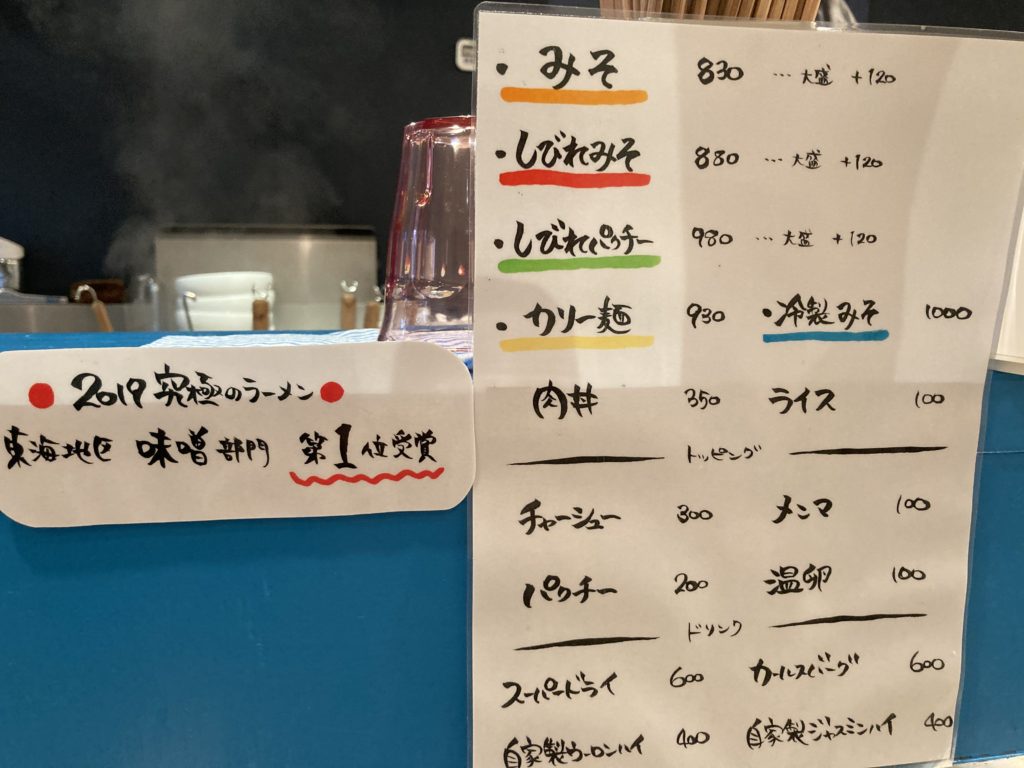 ・みそ 830 … 大盛 +120
・しびれみそ 880 … 大盛 +120
・しびれパクチー 980 … 大盛 +120
・カリー麺 930 ・冷製みそ 1000
肉丼 350 ライス 100
トッピング
チャーシュー 300 メンマ 100
パクチー 200 温卵 100
ドリンク
スーパードライ 600 カールスバーグ 600
自家製ウーロンハイ 400 自家製ジャスミンハイ 400
2019 究極のラーメン
東海地区 味噌部門 第1位受賞